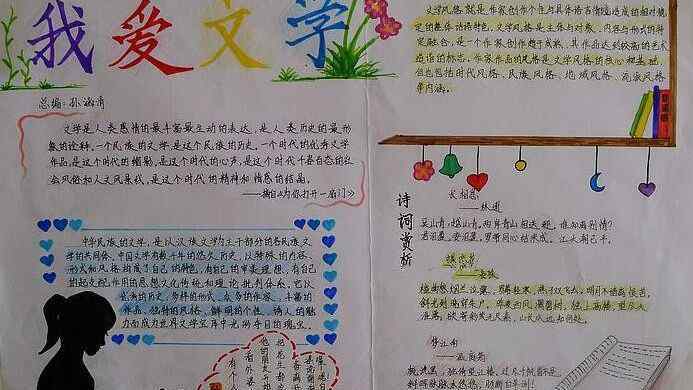 我爱文学
总编：孙海清
文学是人类感情的最丰富最生动的表达，是人类历史的最形
象的诠释，一个民族的文学，是这个民族的历史。一个时代的优秀文学
作品，是这个时代的缩影，是这个时代的心声，是这个时代千姿百态的社
会风俗和人文风景线，是这个时代的精神和情感的结晶。
——摘自《为你打开一扇门》
中华民族的文学，是以汉族文学为主干部分的各民族文
学的共同体。中国文学有数千年的悠久历史，以特殊的内容、
形式和风格构成了自己的特色，有自己的审美理想，有自己
的起支配作用的思想文化传统和理论批判体系。它以
优秀的历史，多样的形式，众多的作家、丰富的
作品、独特的风格、鲜明的个性、诱人的魅
力而成为世界文学宝库中光彩夺目的瑰宝。
文学风格，就是作家创作个性与具体话语情境造成的相对稳
定的整体话语特色。文学风格是主体与对象、内容与形式的特
定融合，是一个作家创作趋于成熟、其作品达到较高的艺术
造诣的标志。作家作品的风格是文学风格的核心和基础，
但也包括时代风格、民族风格、地域风格、流派风格
等内涵。
诗词赏析
长相思
——林逋
吴山青，越山青。两岸青山相送迎，谁知离别情？
君泪盈，妾泪盈。罗带同心结未成，江头潮已平。
蝶恋花
——晏殊
槛菊愁烟兰泣露，罗幕轻寒，燕子双飞去。明月不谙离恨苦，
斜光到晓穿朱户。昨夜西风凋碧树，独上高楼，望尽天
涯路。欲寄彩笺无尺素，山长水远知何处。
梦江南
——温庭筠
梳洗罢，独倚望江楼。过尽千帆皆不是，
斜晖脉脉水悠悠。肠断白蘋洲。